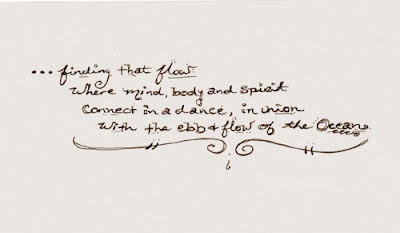 ... finding that flow
Where mind, body and spirit
Connect in a dance, in union
With the ebb & flow of the Ocean